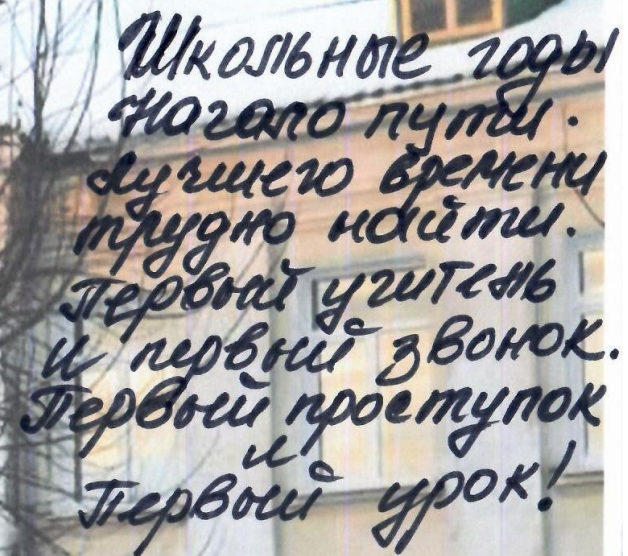 Школьные годы
Начало пути.
Лучшего времени
трудно найти.
Первый учитель
и первый звонок.
Первый проступок
и
Первый урок!